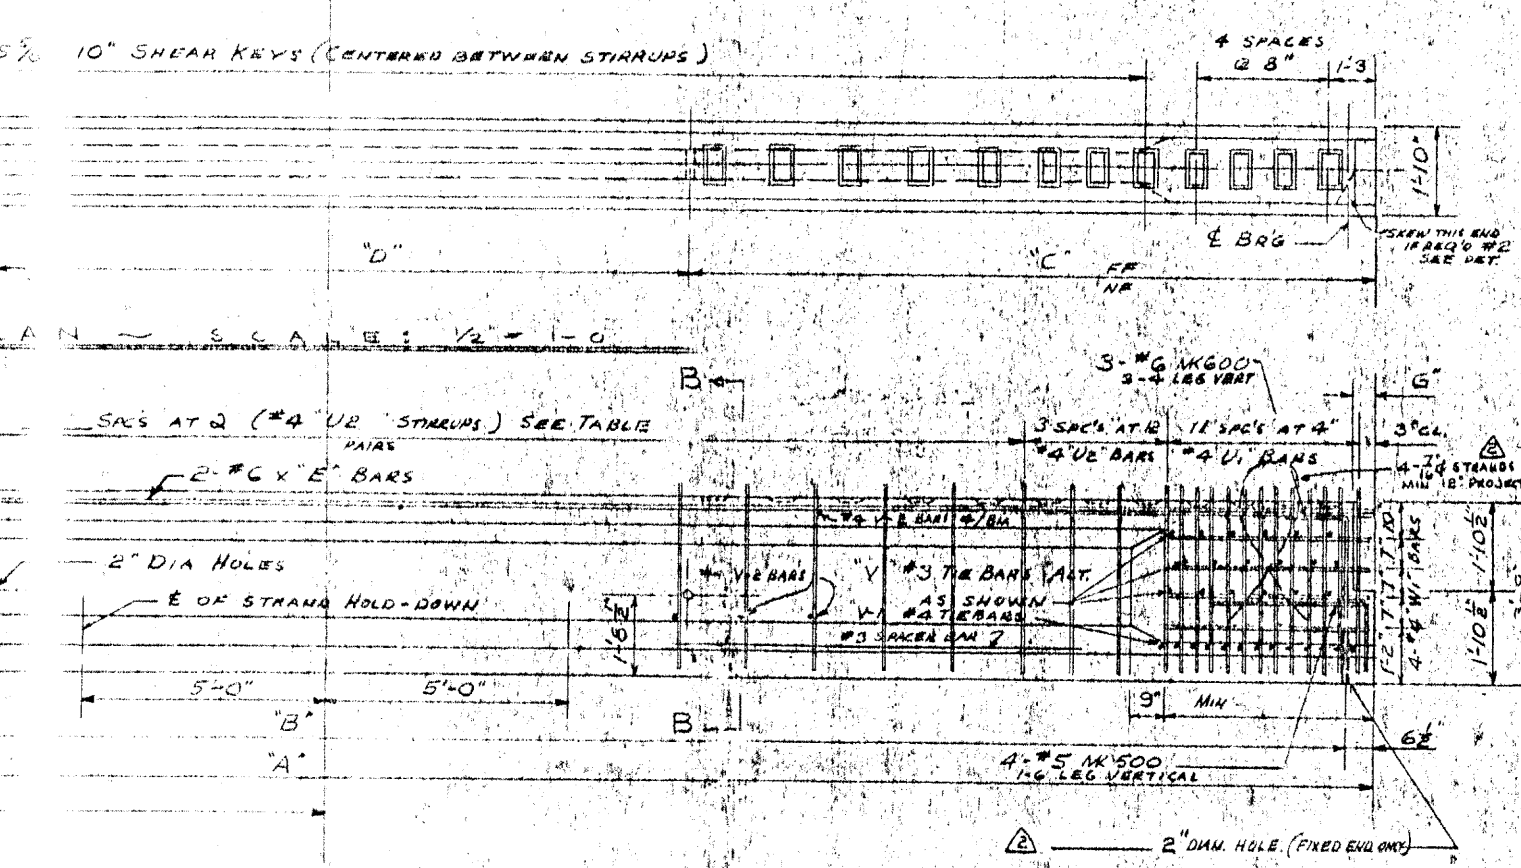 10" SHEAR KEYS (CENTERED BETWEEN STIRRUPS)
4 SPACES
@ 8"
1'-3
1'-10"
℄ BR'G
SKEW THIS END
IF REQ'D #2
SEE DET.
"D"
"C"
FF
NF
LAN ~ SCALE: 1/2" = 1-0
3-#6 MK600
3-4 LEG VERT
B
6"
SPCS AT 2 (#4 "U2" STIRRUPS) SEE TABLE
PAIRS
3 SPC'S AT 12
#4 "U2" BARS
11 SPC'S AT 4"
#4 U1 BARS
3" CL.
2
4-7/16 φ STRANDS
MIN 18" PROJECT
2-#6 x "E" BARS
#4 V-2 BARS 4/BM
2" DIA HOLES
V-2 BARS
"V" #3 TIE BARS ALT.
AS SHOWN
℄ OF STRAND HOLD-DOWN
V-1 #4 TIE BARS
#3 SPACER BAR
1'-8 1/2"
1'-2", 7", 7", 7", 10"
4-#4 "W1" BARS
1'-10 1/2"
1'-10 1/2"
5'-0"
5'-0"
"B"
B
9"
MIN
6 1/2"
"A"
4-#5 MK500
1-6 LEG VERTICAL
2
2" DIAM. HOLE. (FIXED END ONLY)